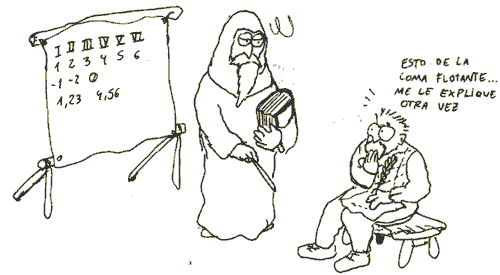 I II III IV V VI
1 2 3 4 5 6
-1 -2 0
1,23 4,56
ESTO DE LA
COMA FLOTANTE...
ME LE EXPLIQUE
OTRA VEZ